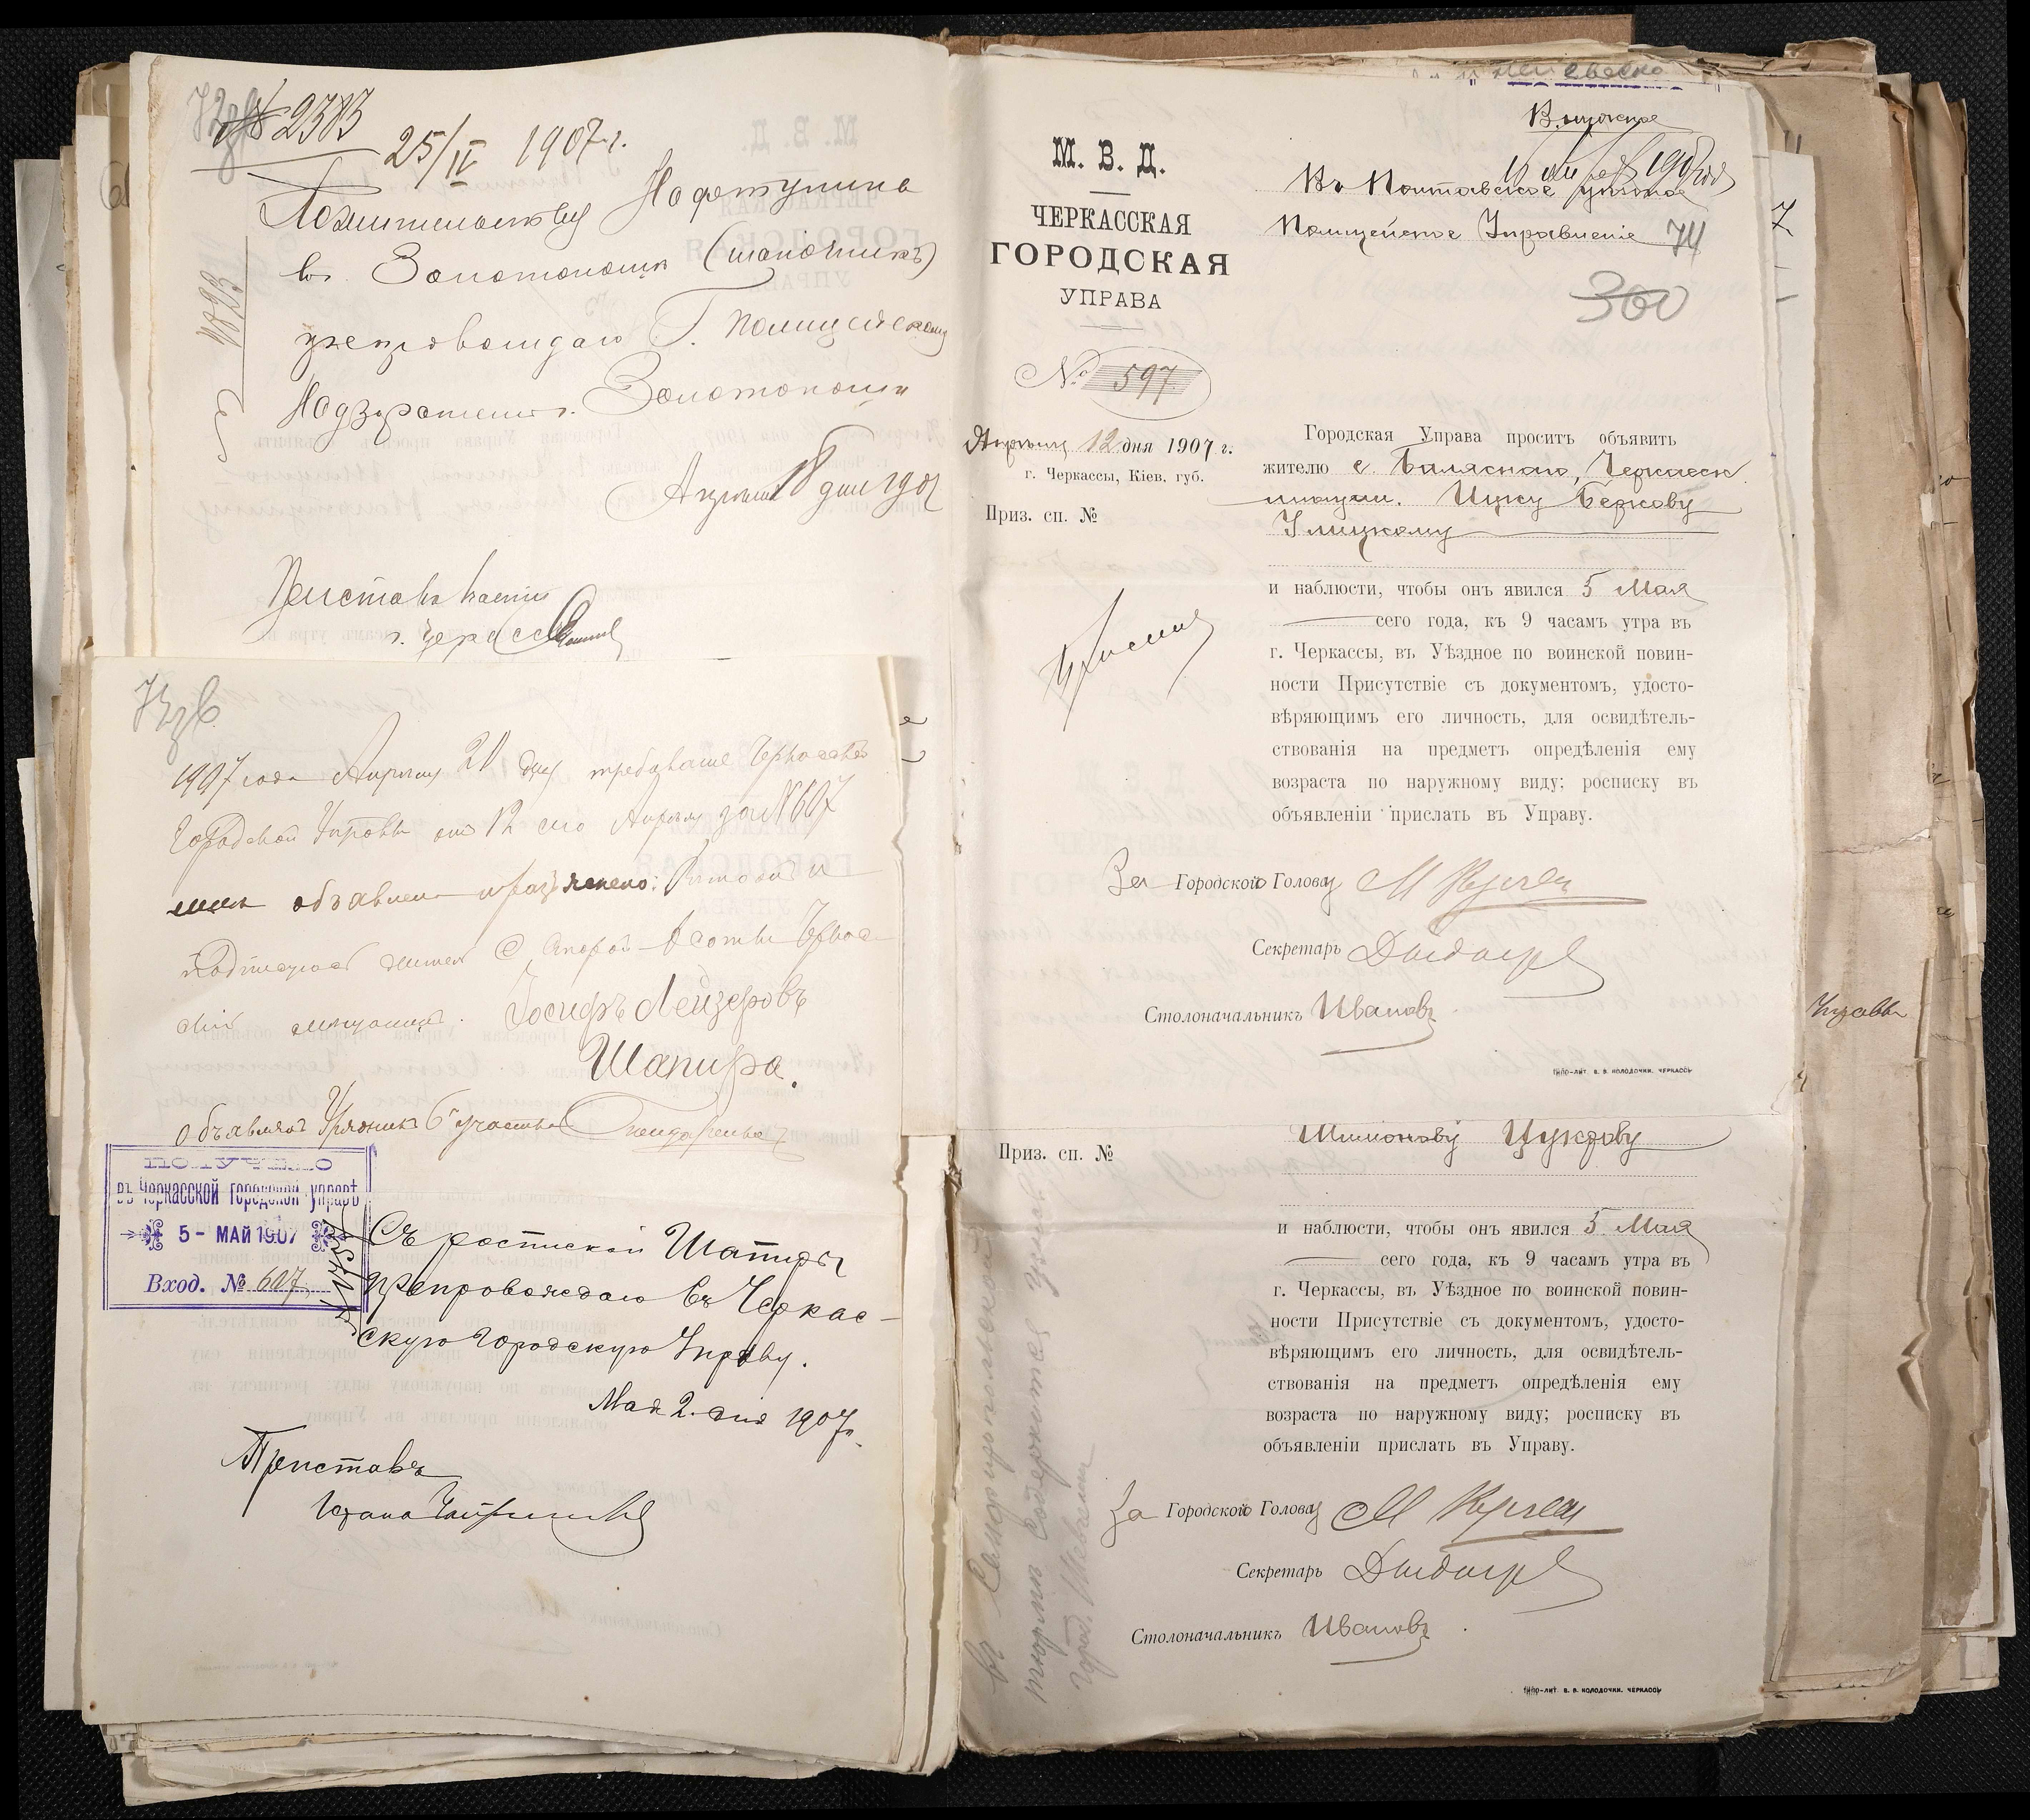 № 2383
25/IV 1907 г.
По жительству Нафтулина
въ Золотоноши (шапошникъ)
препровождаю Г. Полицейскому
Надзирателю г. Золотоноши
Апреля 18 дня 1907
Приставъ части
г. Черкассъ
73 об.
1907 года Апреля 20 дня требование Черкасской
Городской Управы отъ 12 сего Апреля за № 607
мнѣ объявлено и разъяснено: въ томъ и
подписуюсь житель с.
мѣщанинъ. Іосифъ Лейзеровъ
Шапиро.
Объявлялъ Урядникъ 6 участка
ПОЛУЧЕНО
въ Черкасской городской управѣ
5 - МАЙ 1907
Вход. № 607
Съ роспиской Шапиры
препровождаю въ Черкас-
скую Городскую Управу.
Мая 2 дня 1907 г.
Приставъ
М. В. Д.
ЧЕРКАССКАЯ
ГОРОДСКАЯ
УПРАВА
№ 597
Апреля 12 дня 1907 г.
г. Черкассы, Кіев. губ.
Приз. сп. №
Въ Полтавское уѣздное
Полицейское Управленіе
74
300
Городская Управа проситъ объявить
жителю с. Баляснаго, Черкасск.
мѣщан. Ицку Беркову
Улицкому
и наблюсти, чтобы онъ явился 5 Мая
сего года, къ 9 часамъ утра въ
г. Черкассы, въ Уѣздное по воинской повин-
ности Присутствіе съ документомъ, удосто-
вѣряющимъ его личность, для освидѣтель-
ствованія на предметъ опредѣленія ему
возраста по наружному виду; росписку въ
объявленіи прислать въ Управу.
За Городского Голову
Секретарь
Столоначальникъ Ивановъ
ТИПО-ЛИТ. В. В. КОЛОДОЧКИ. ЧЕРКАССЫ
Шимонову Цукрову
Приз. сп. №
и наблюсти, чтобы онъ явился 5 Мая
сего года, къ 9 часамъ утра въ
г. Черкассы, въ Уѣздное по воинской повин-
ности Присутствіе съ документомъ, удосто-
вѣряющимъ его личность, для освидѣтель-
ствованія на предметъ опредѣленія ему
возраста по наружному виду; росписку въ
объявленіи прислать въ Управу.
За Городского Голову
Секретарь
Столоначальникъ Ивановъ
ТИПО-ЛИТ. В. В. КОЛОДОЧКИ. ЧЕРКАССЫ
въ Симферопольской
тюрьмѣ содержится
Управы